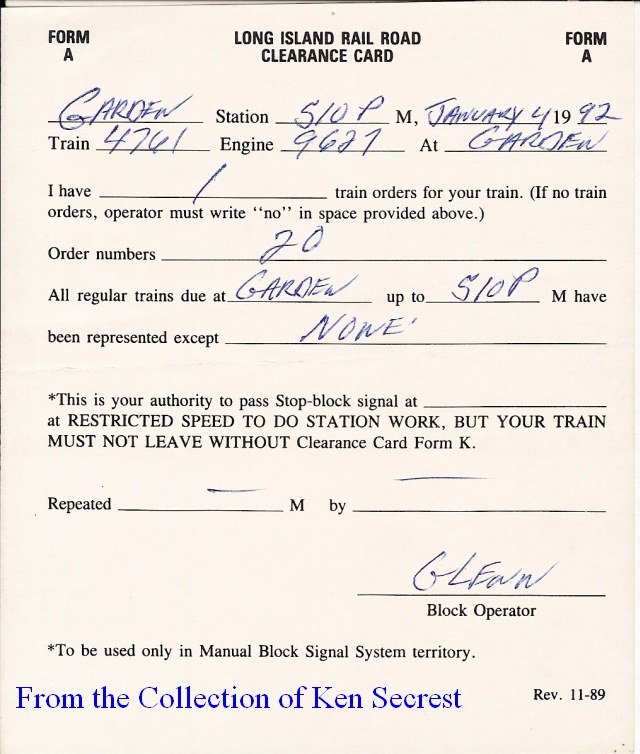 FORM A LONG ISLAND RAIL ROAD CLEARANCE CARD FORM A
GARDEN Station 510 P M, JANUARY 4 19 92
Train 4761 Engine 9627 At GARDEN
I have 1 train orders for your train. (If no train
orders, operator must write "no" in space provided above.)
Order numbers 20
All regular trains due at GARDEN up to 510P M have
been represented except NONE
*This is your authority to pass Stop-block signal at
at RESTRICTED SPEED TO DO STATION WORK, BUT YOUR TRAIN
MUST NOT LEAVE WITHOUT Clearance Card Form K.
Repeated — M by —
GLENN
Block Operator
*To be used only in Manual Block Signal System territory.
From the Collection of Ken Secrest
Rev. 11-89